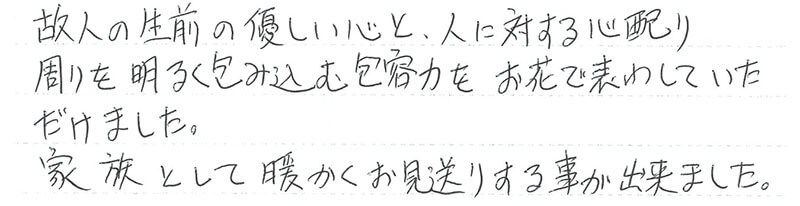 故人の生前の優しい心と、人に対する心配り
周りを明るく包み込む包容力をお花で表わしていた
だけました。
家族として暖かくお見送りする事が出来ました。